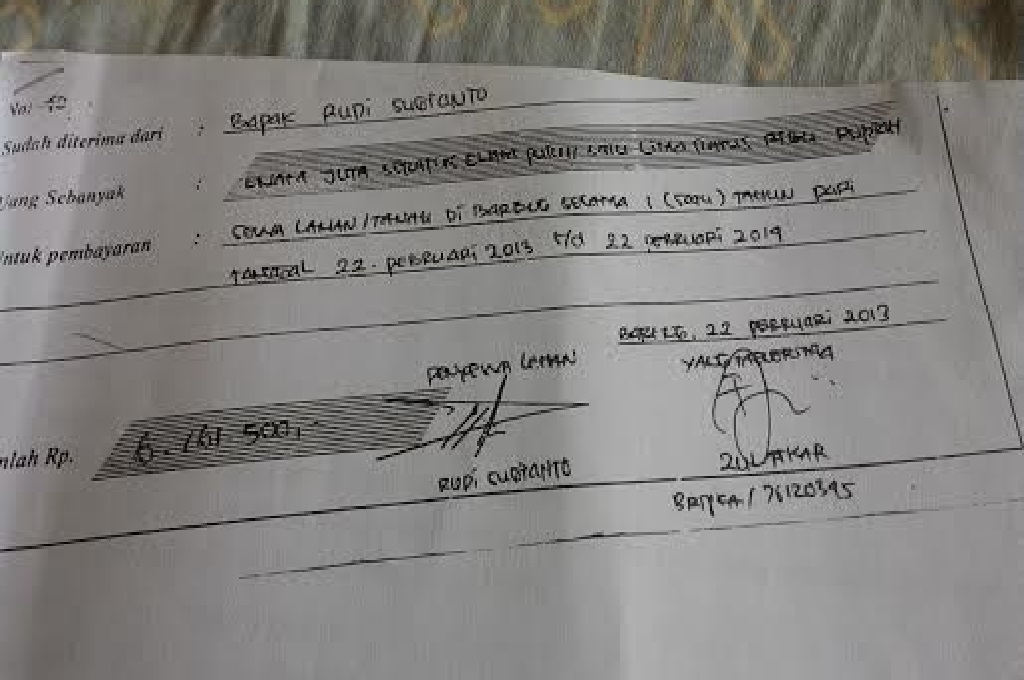 Sudah diterima dari : BAPAK RUDI SUGIANTO
Uang Sebanyak : ENAM JUTA SERATUS ENAM PULUH SATU LIMA RATUS RIBU RUPIAH
Untuk pembayaran : SEWA LAHAN/TANAH DI SELAMA 1 (SATU) TAHUN DARI
TANGGAL 22. FEBRUARI 2013 S/d 22 FEBRUARI 2014
22 FEBRUARI 2013
PENYEWA LAHAN YANG MENERIMA
mlah Rp. 6.161.500,-
RUDI SUGIANTO ZULFAKAR
/ 76120395